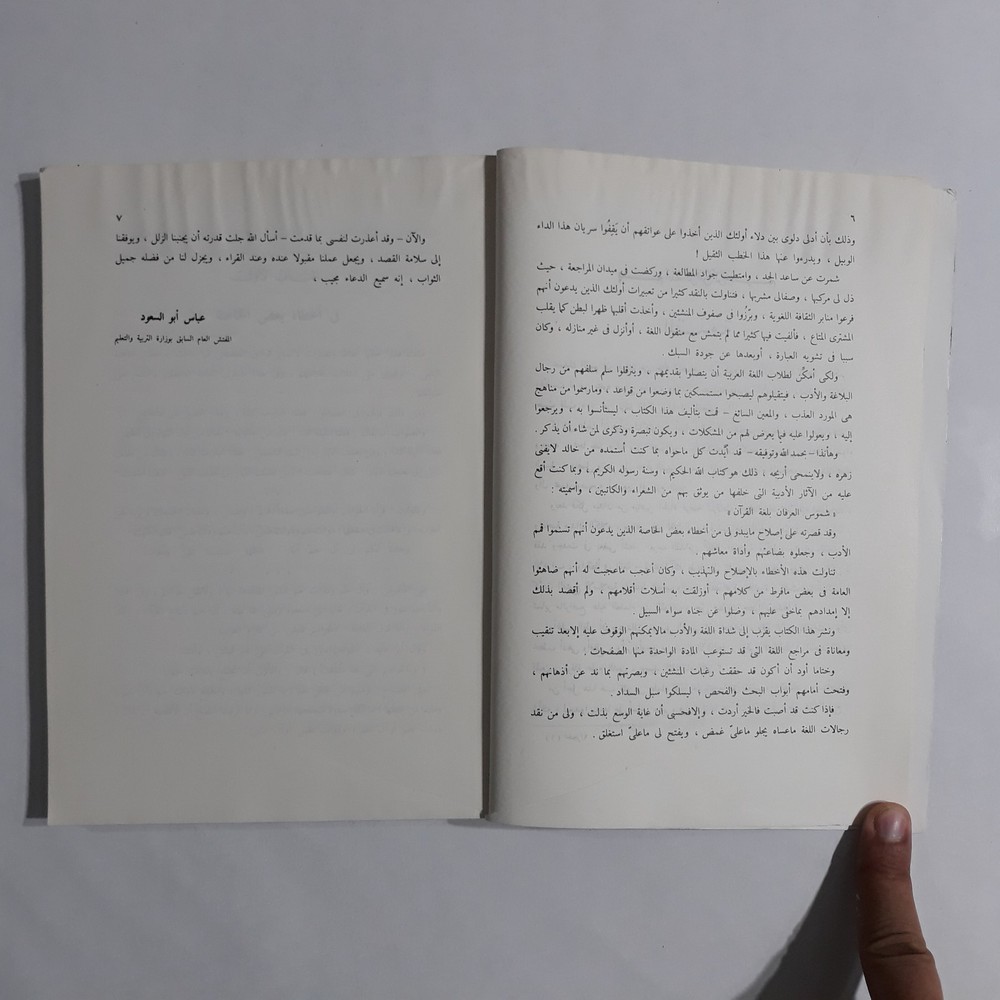 ٦
وذلك بأن أدلى دلوى بين دلاء أولئك الذين أخذوا على عواتقهم أن يَقِفُوا سريان هذا الداء
الوبيل ، ويدرءوا عنها هذا الخطب الثقيل !
شمرت عن ساعد الجد ، وامتطيت جواد المطالعة ، وركضت فى ميدان المراجعة ، حيث
ذل لى مركبها ، وصفالى مشربها ، فتناولت بالنقد كثيرا من تعبيرات أولئك الذين يدعون أنهم
فرعوا منابر الثقافة اللغوية ، وبرَّزُوا فى صفوف المنشئين ، وأخذت أقلبها ظهرا لبطن كما يقلب
المشترى المتاع ، فألفيت فيها كثيرا مما لم يتمش مع منقول اللغة ، أوأنزل فى غير منازله ، وكان
سببا فى تشويه العبارة ، أوبعدها عن جودة السبك .
ولكى أمكِّن لطلاب اللغة العربية أن يتصلوا بقديمهم ، ويترقلوا سلم سلفهم من رجال
البلاغة والأدب ، فيتقيلوهم ليصبحوا مستمسكين بما وضعوا من قواعد ، ومارسموا من مناهج
هى المورد العذب ، والمعين السائغ – قمت بتأليف هذا الكتاب ، ليستأنسوا به ، ويرجعوا
إليه ، ويعولوا عليه فيما يعرض لهم من المشكلات ، ويكون تبصرة وذكرى لمن شاء أن يذكر .
وهأنذا – بحمد الله وتوفيقه – قد أيَّدت كل ماحواه بما كنت أستمده من خالد لايفنى
زهره ، ولاينمحى أريجه ، ذلك هو كتاب الله الحكيم ، وسنة رسوله الكريم ، وبما كنت أقع
عليه من الآثار الأدبية التى خلفها من يوثق بهم من الشعراء والكاتبين ، وأسميته :
« شموس العرفان بلغة القرآن »
وقد قصرته على إصلاح مايبدو لى من أخطاء بعض الخاصة الذين يدعون أنهم تسنموا قمم
الأدب ، وجعلوه بضاعتهم وأداة معاشهم .
تناولت هذه الأخطاء بالإصلاح والتهذيب ، وكان أعجب ماعجبت له أنهم ضاهئوا
العامة فى بعض مافرط من كلامهم ، أوزلقت به أسلات أقلامهم ، ولم أقصد بذلك
إلا إمدادهم بماخفى عليهم ، وضلوا عن جناه سواء السبيل .
ونشر هذا الكتاب يقرب إلى شداة اللغة والأدب مالايمكنهم الوقوف عليه إلابعد تنقيب
ومعاناة فى مراجع اللغة التى قد تستوعب المادة الواحدة منها الصفحات .
وختاما أود أن أكون قد حققت رغبات المنشئين ، وبصرتهم بما ند عن أذهانهم ،
وفتحت أمامهم أبواب البحث والفحص ؛ ليسلكوا سبل السداد .
فإذا كنت قد أصبت فالخير أردت ، وإلافحسبى أن غاية الوسع بذلت ، ولى من نقد
رجالات اللغة ماعساه يجلو ماعلىّ غمض ، ويفتح لى ماعلىّ استغلق .
٧
والآن – وقد أعذرت لنفسى بما قدمت – أسأل الله جلت قدرته أن يجنبنا الزلل ، ويوفقنا
إلى سلامة القصد ، ويجعل عملنا مقبولا عنده وعند القراء ، ويجزل لنا من فضله جميل
الثواب ، إنه سميع الدعاء مجيب ،
عباس أبو السعود
المفتش العام السابق بوزارة التربية والتعليم